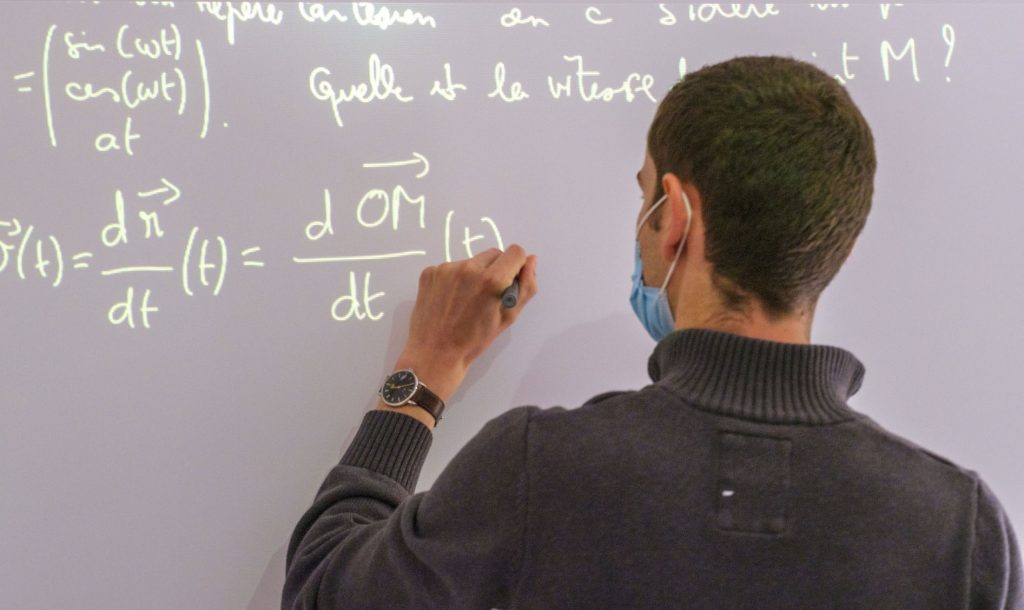 repère cartésien on c
= (sin(ωt) cos(ωt) at). Quelle est la vitesse M ?
v⃗(t) = d r⃗/dt (t) = d OM⃗/dt (t)